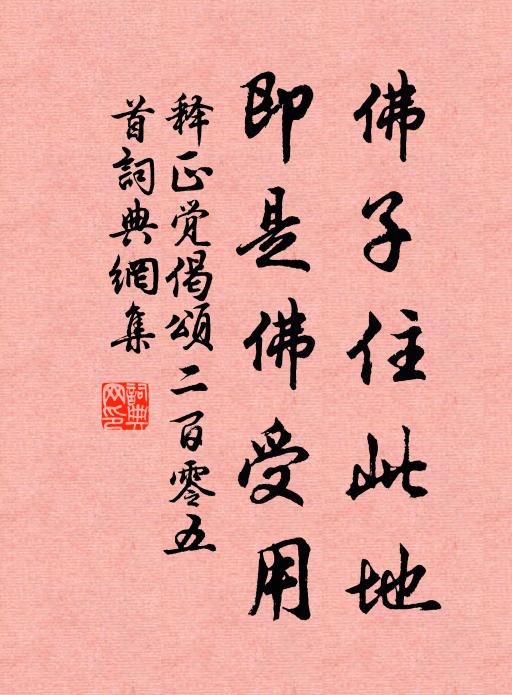 佛子住此地
即是佛受用
释正觉偈頌二百零五
首詞典網集
詞典網印